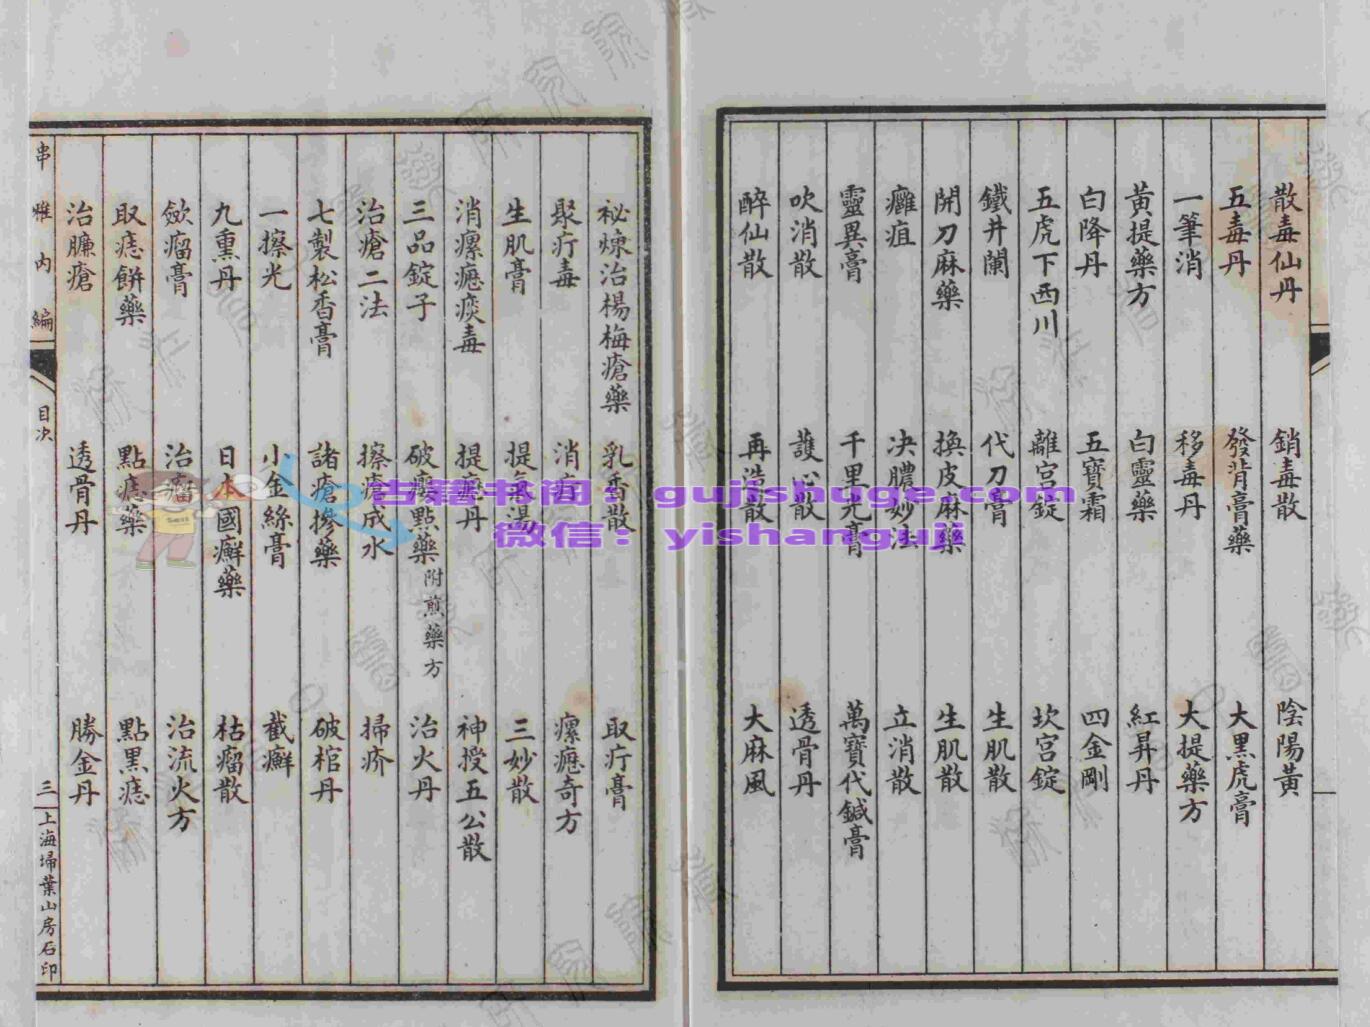 散毒仙丹 銷毒散 陰陽黃
五毒丹 發背膏藥 大黑虎膏
一筆消 移毒丹 大提藥方
黃提藥方 白靈藥 紅昇丹
白降丹 五寶霜 四金剛
五虎下西川 離宮錠 坎宮錠
鐵井闌 代刀膏 生肌散
開刀麻藥 換皮麻藥 生肌散
癰疽 决膿妙法 立消散
靈異膏 千里光膏 萬寶代鍼膏
吹消散 護心散 透骨丹
醉仙散 再造散 大麻風
祕煉治楊梅瘡藥 乳香散 取疔膏
聚疔毒 消疔 瘰癧奇方
生肌膏 提氣湯 三妙散
消瘰癧痰毒 提癧丹 神授五公散
三品錠子 破癭點藥附煎藥方 治火丹
治瘡二法 擦瘡成水 掃疥
七製松香膏 諸瘡摻藥 破棺丹
一擦光 小金絲膏 截癬
九熏丹 日本國癬藥 枯瘤散
斂瘤膏 治瘤 治流火方
取痣餅藥 點痣藥 點黑痣
治臁瘡 透骨丹 勝金丹
串雅內編 目次 三 上海埽葉山房石印
古籍书阁：gujishuge.com
微信：yishanguji